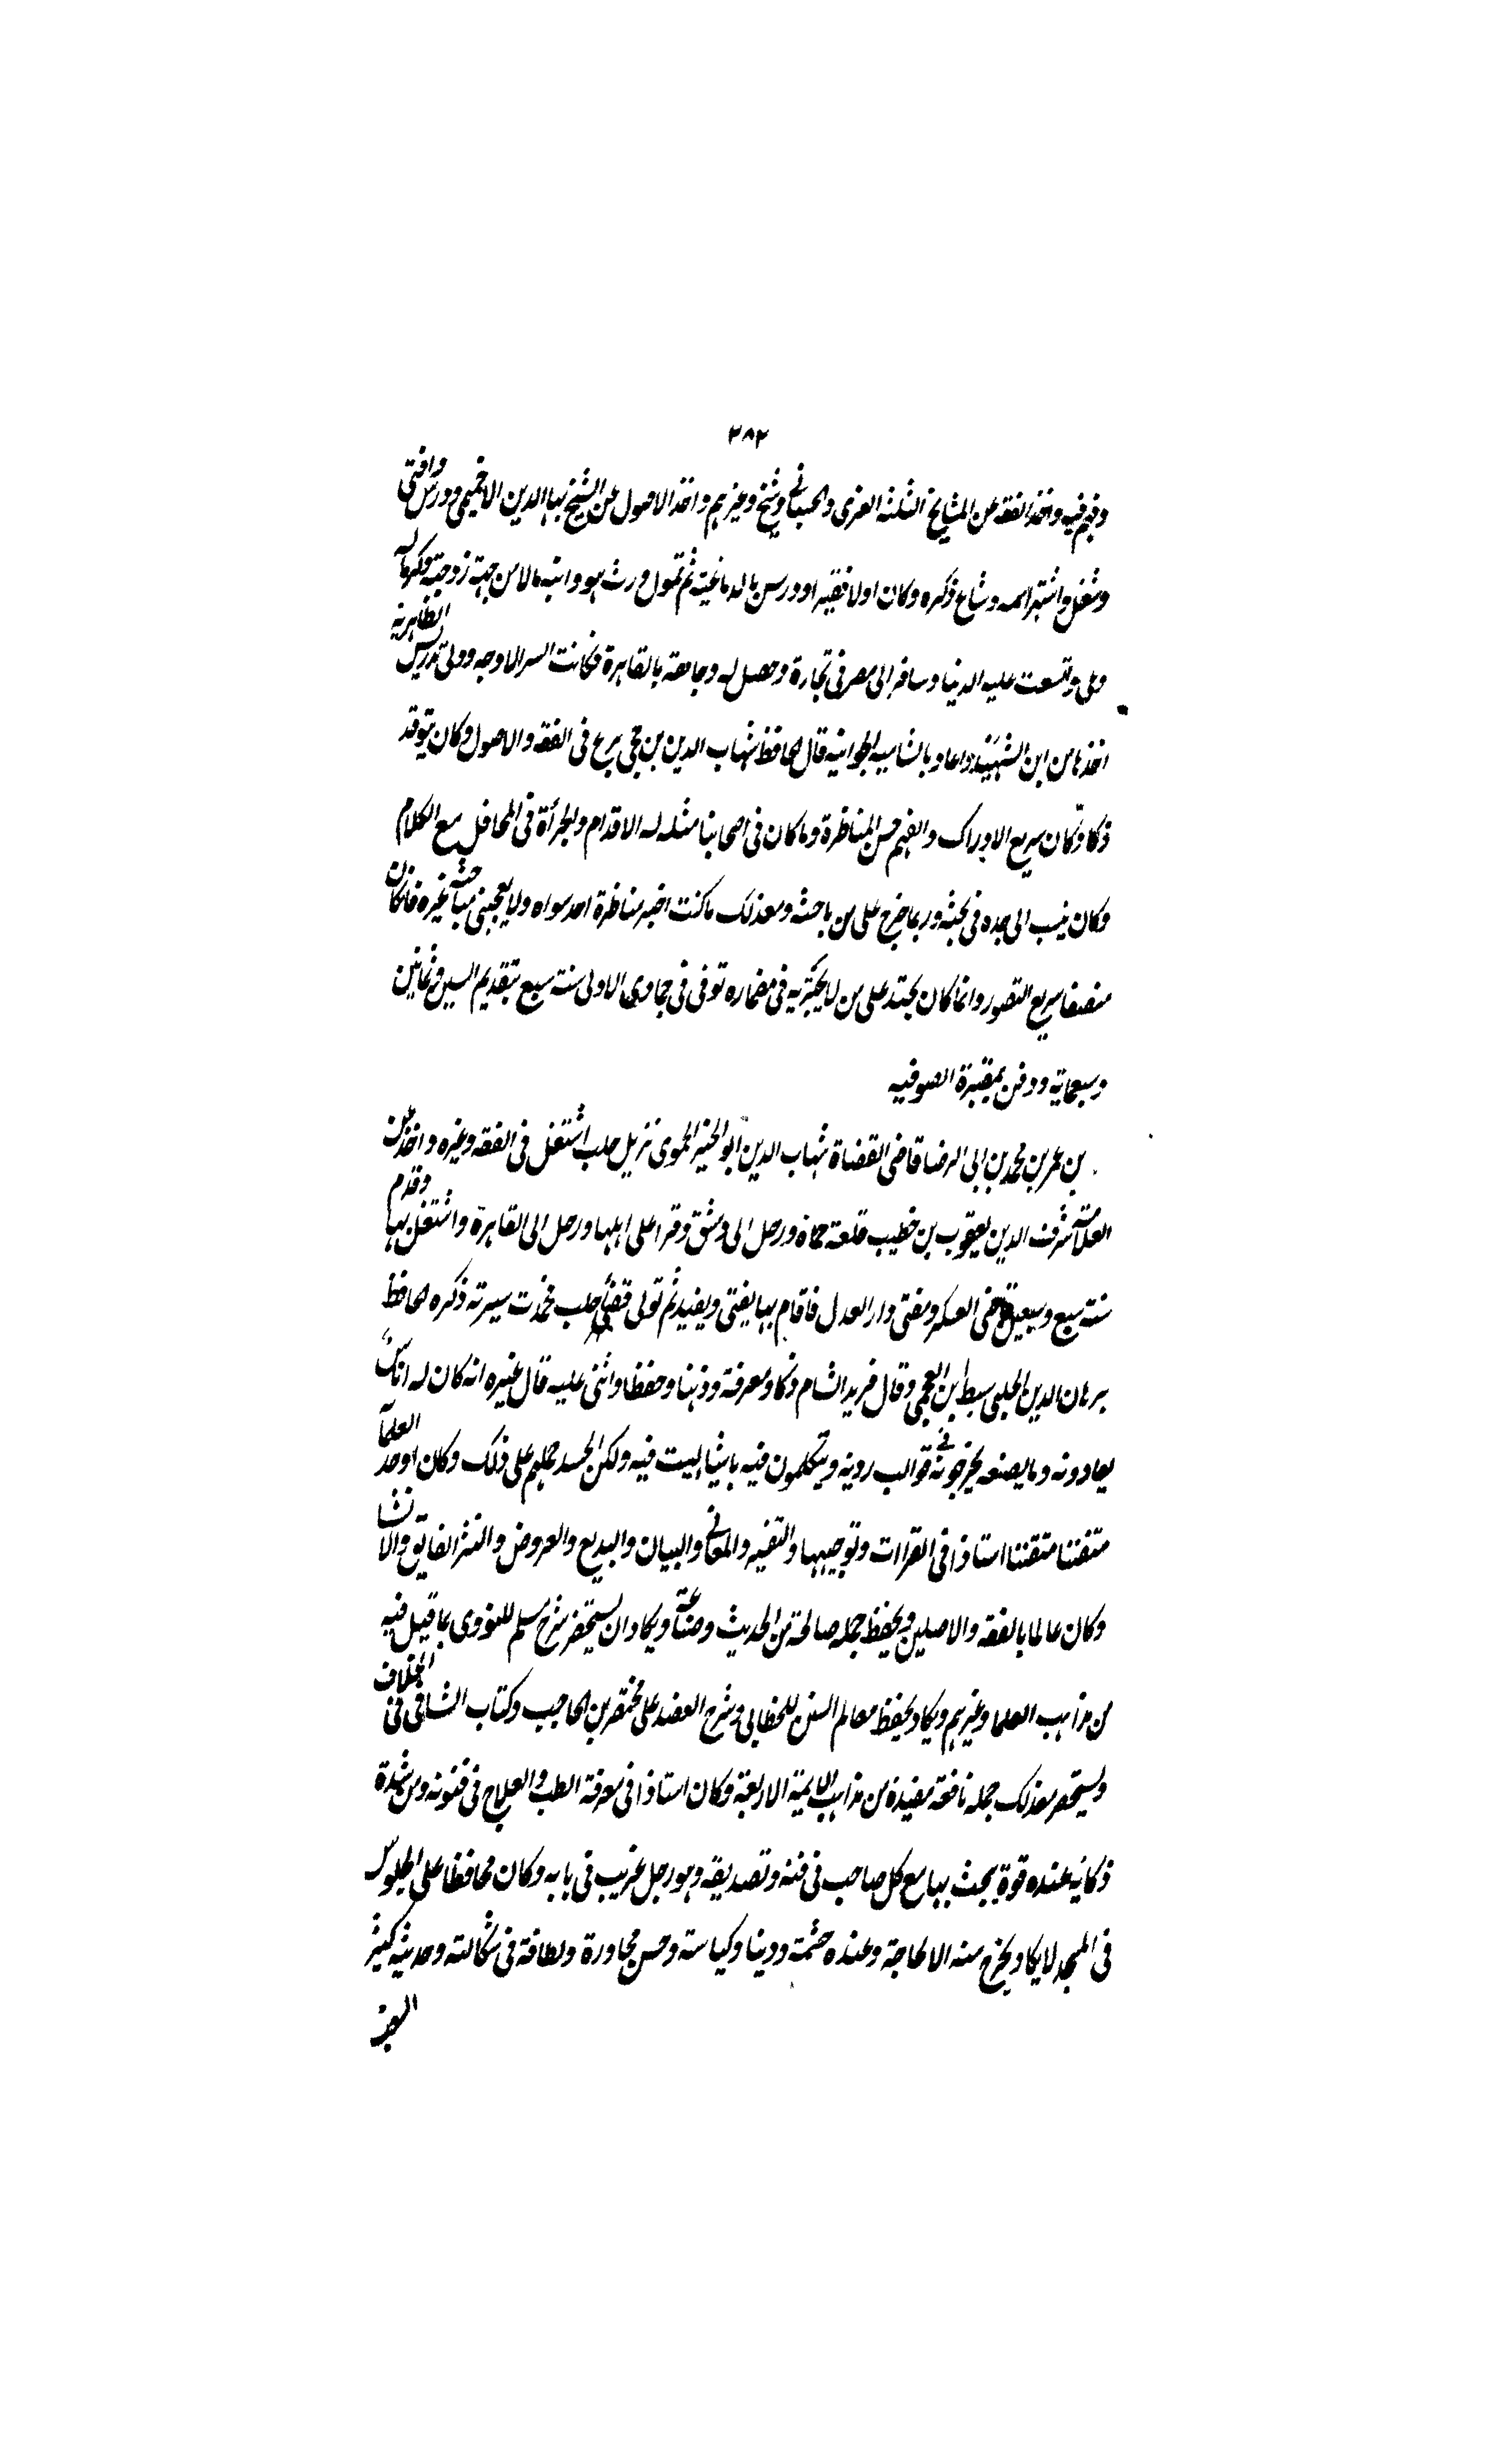 ٢٨٢
وفهم فيه واخذ الفقه عن المشايخ الثلثة الغزى والحسبانى و شيخ وغيرهم واخذ الاصول عن الشيخ بها الدين الاخميمى ودرس وافتى
وشغل واشتهر اسمه وشاع ذكره وكان اولا فقيرا ودرس بالدماغية ثم تمول ورث هو وابنه مالا من جهة زوجته وكثر ماله
ونمى واتسعت عليه الدنيا وسافر الى مصر فى تجارة وحصل له وجاهة بالقاهرة وكانت السر الاوجه وولى تدريس الظاهرية
اخذها من ابن الشهيد واعاد بالشامية الجوانية قال الحافظ شهاب الدين بن حجى برع فى الفقه والاصول وكان يتوقد
ذكا وكان سريع الادراك والفهم حسن المناظرة وما كان فى اصحابنا مثله له الاقدام والجرأة فى المحافل مع الكلام
وكان ينسب الى حده فى بحثه وربما خرج على من باحثه ومع ذلك ما كنت اخبر مناظرة احد سواه ولا يعجبنى مباحثة غيره فانه كان
منصفا سريع التصور وانما كان يحتد على من لا يجريه فى مضماره توفى فى جمادى الاولى سنة سبع بتقديم السين وثمانين
وسبعماية ودفن بمقبرة الصوفيه
بن عمر بن محمد بن ابى الرضا قاضى القضاة شهاب الدين ابو الخير الحموى نزيل حلب اشتغل فى الفقه وغيره واخذ عن
العلامة شرف الدين يعقوب بن خطيب قلعة حماة ورحل الى دمشق وقرا على اهلها ورحل الى القاهرة واشتغل بها وقدم
سنة سبع وسبعين قاضى العسكر ومفتى دار العدل فاقام بها يفتى ويفيد ثم تولى قضاء حلب فحمدت سيرته ذكره الحافظ
برهان الدين الحلبى سبط بن العجمى وقال فريد الشام ذكا ومعرفة وذهنا وحفظا واثنى عليه قال غيره انه كان له اناس
يعادونه وما يصنعه يخرجونه فى قوالب ردية ويتكلمون فيه باشيا ليست فيه ولكن الحسد حملهم على ذلك وكان اوحد العلمآ
متفننا متقننا استاذا فى القراات وتوجيهها والتفسير والمعانى والبيان والبديع والعروض والنثر الفايق والانشا
وكان عالما بالفقه والاصلين ويحفظ جمله صالحة من الحديث وصناعة ويكاد ان يستحضر شرح مسلم للنووى بما قيل فيه
من مذاهب العلما وغيرهم ويكاد يحفظ معالم السنن للخطابى وشرح العضد على مختصر بن الحاجب وكتاب الشافى فى الخلاف
ويستحضر مع ذلك جمله نافعة مفيدة من مذاهب الايمة الاربعة وكان استاذا فى معرفة الطب والعلاج فى فنونه ومن شدة
ذكايه عنده قوة يبحث بها مع كل صاحب فى فنه وتصديقه وهو رجل غريب فى بابه وكان محافظا على الجلوس
فى المسجد لا يكاد يخرج منه الا لحاجة وعنده حشمة ودينا وكياسة وحسن محاورة ولطافة فى شكالته وحديثه كثير